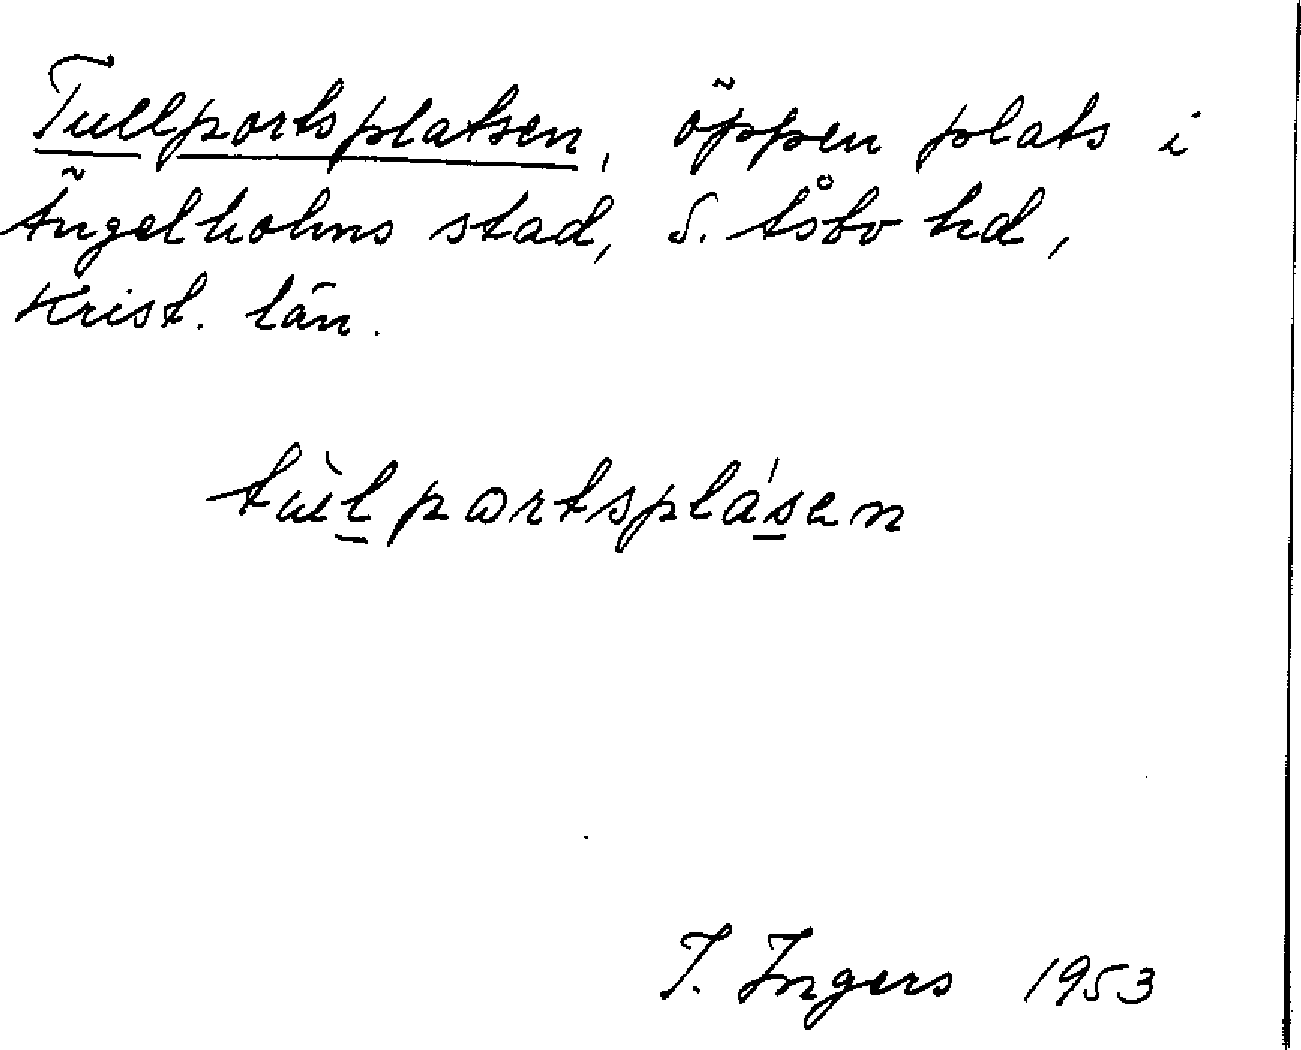 Tullportsplatsen, öppen plats i
Ängelholms stad, S. Åsbo hd,
Krist. län.
tùl̲portsplás̲en
I. Ingers 1953